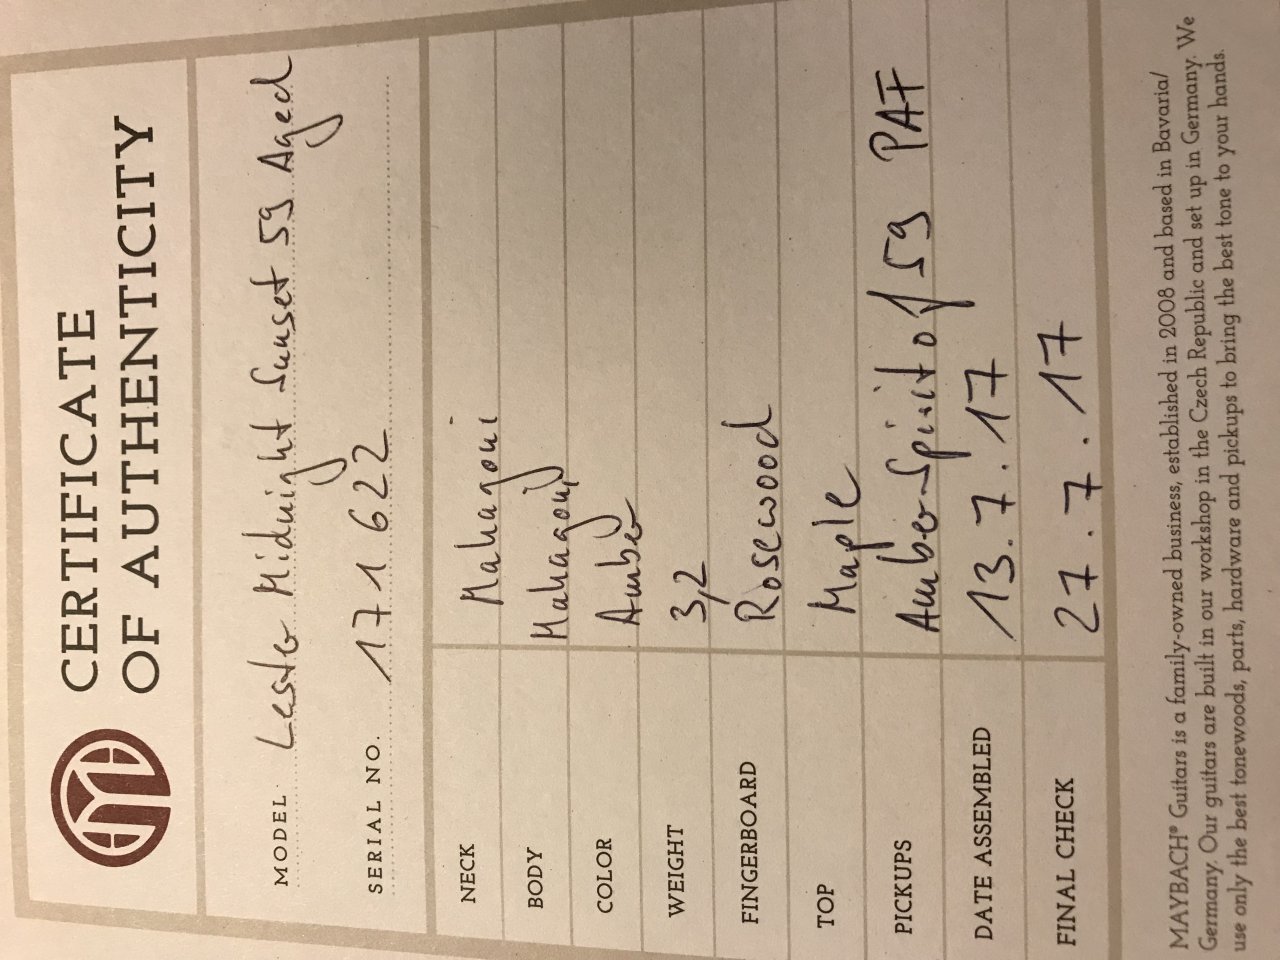 CERTIFICATE
OF AUTHENTICITY
MODEL Lester Midnight Sunset 59 Aged
SERIAL NO. 171622
NECK Mahagoni
BODY Mahagoni
COLOR Amber
WEIGHT 3,2
FINGERBOARD Rosewood
TOP Maple
PICKUPS Amber Spirit of 59 PAF
DATE ASSEMBLED 13.7.17
FINAL CHECK 27.7.17
MAYBACH® Guitars is a family-owned business, established in 2008 and based in Bavaria/
Germany. Our guitars are built in our workshop in the Czech Republic and set up in Germany. We
use only the best tonewoods, parts, hardware and pickups to bring the best tone to your hands.